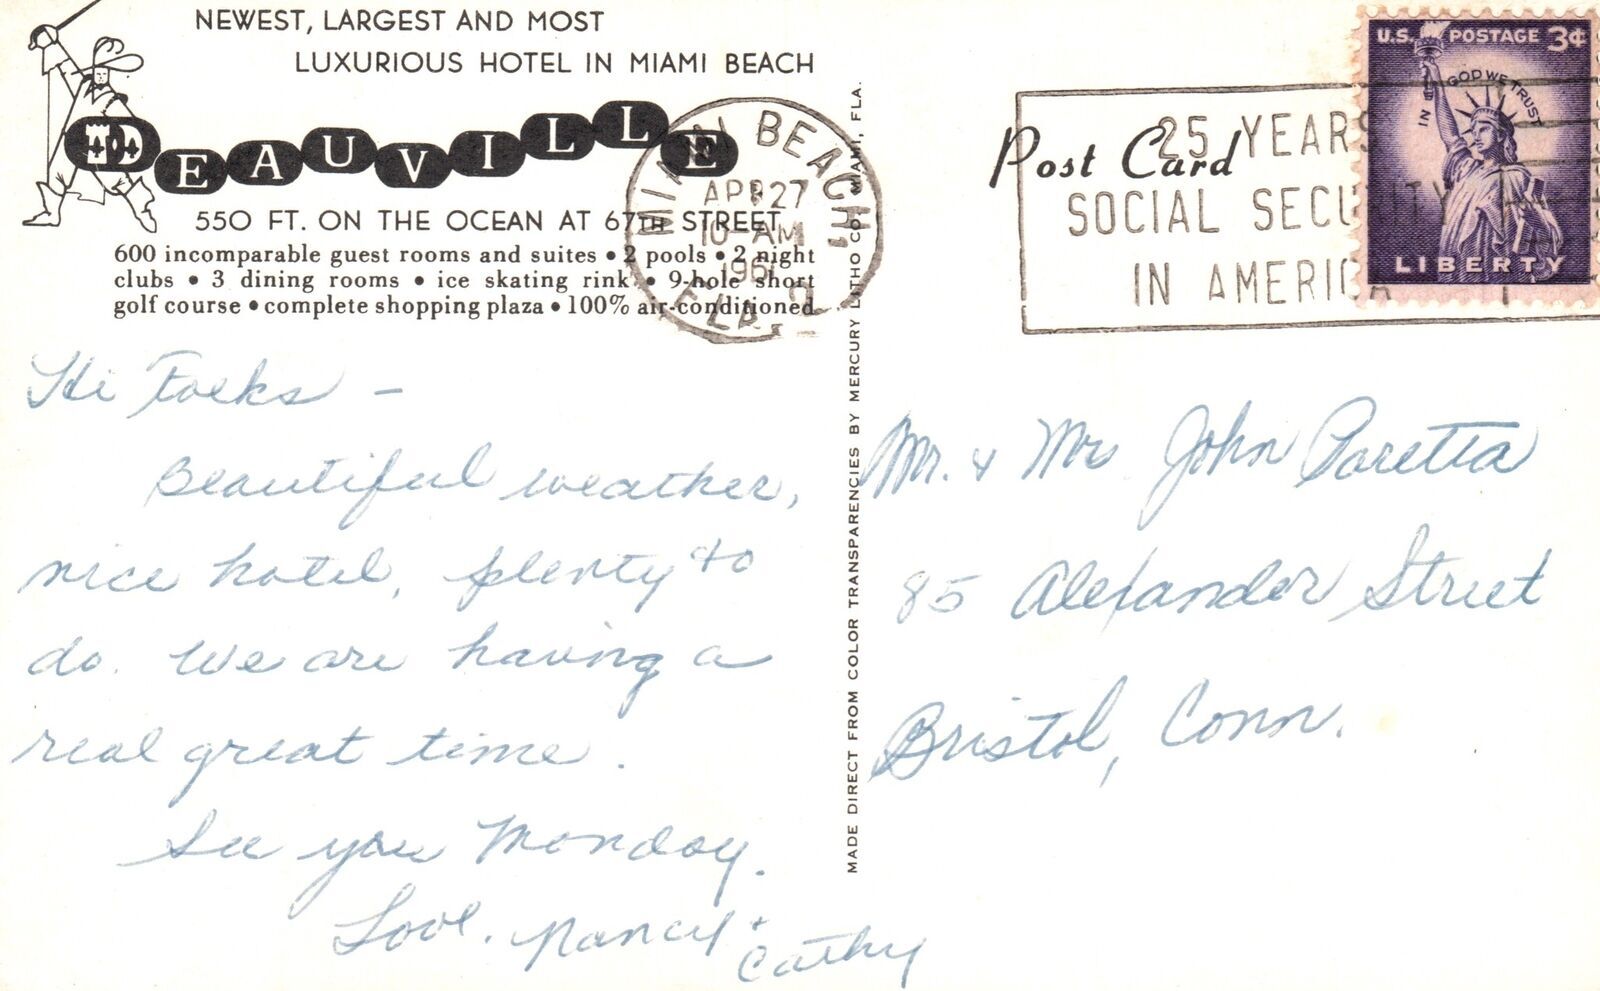 NEWEST, LARGEST AND MOST
LUXURIOUS HOTEL IN MIAMI BEACH
DEAUVILLE
550 FT. ON THE OCEAN AT 67TH STREET
600 incomparable guest rooms and suites • 2 pools • 2 night
clubs • 3 dining rooms • ice skating rink • 9-hole short
golf course • complete shopping plaza • 100% air-conditioned
Hi Folks -
Beautiful weather,
nice hotel, plenty to
do. We are having a
real great time.
See you Monday.
Love, Nancy +
Cathy
MIAMI BEACH,
APR 27
10-AM
FLA. 2
MADE DIRECT FROM COLOR TRANSPARENCIES BY MERCURY LITHO CO. MIAMI, FLA.
Post Card
25 YEARS
SOCIAL SECURITY
IN AMERICA
U.S. POSTAGE 3¢
IN GOD WE TRUST
LIBERTY
Mr. & Mrs John Paretta
85 Alexander Street
Bristol, Conn.